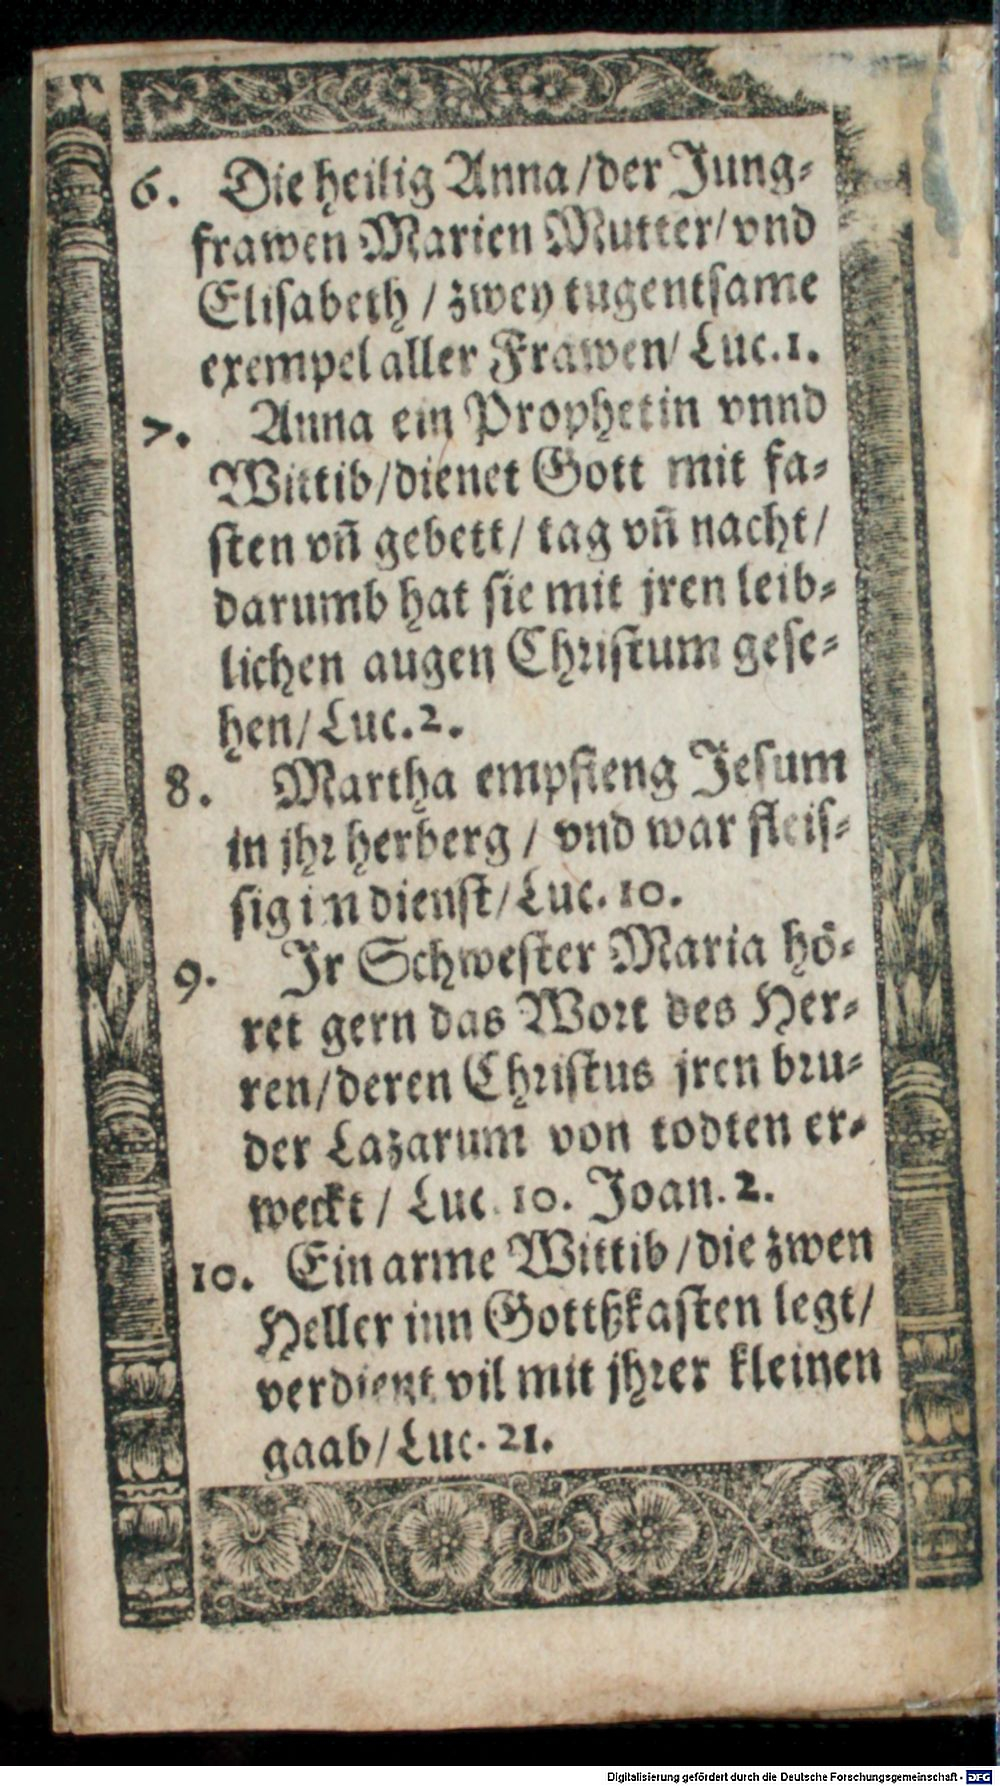 6. Die heilig Anna/der Jung⸗
frawen Marien Mutter/ vnd
Elisabeth / zwey tugentsame
exempel aller Frawen/ Luc.1.
7. Anna ein Prophetin vnnd
Wittib/dienet Gott mit fa⸗
sten vñ gebett/ tag vñ nacht/
darumb hat sie mit jren leib⸗
lichen augen Christum gese⸗
hen/Luc.2.
8. Martha empfieng Jesum
in jhr herberg / vnd war fleis⸗
sig in dienst/Luc. 10.
9. Jr Schwester Maria hö⸗
ret gern das Wort des Her⸗
ren/deren Christus jren bru⸗
der Lazarum von todten er⸗
weckt / Luc. 10. Joan. 2.
10. Ein arme Wittib /die zwen
Heller inn Gottßkasten legt/
verdient vil mit jhrer kleinen
gaab/Luc. 21.
Digitalisierung gefördert durch die Deutsche Forschungsgemeinschaft - DFG